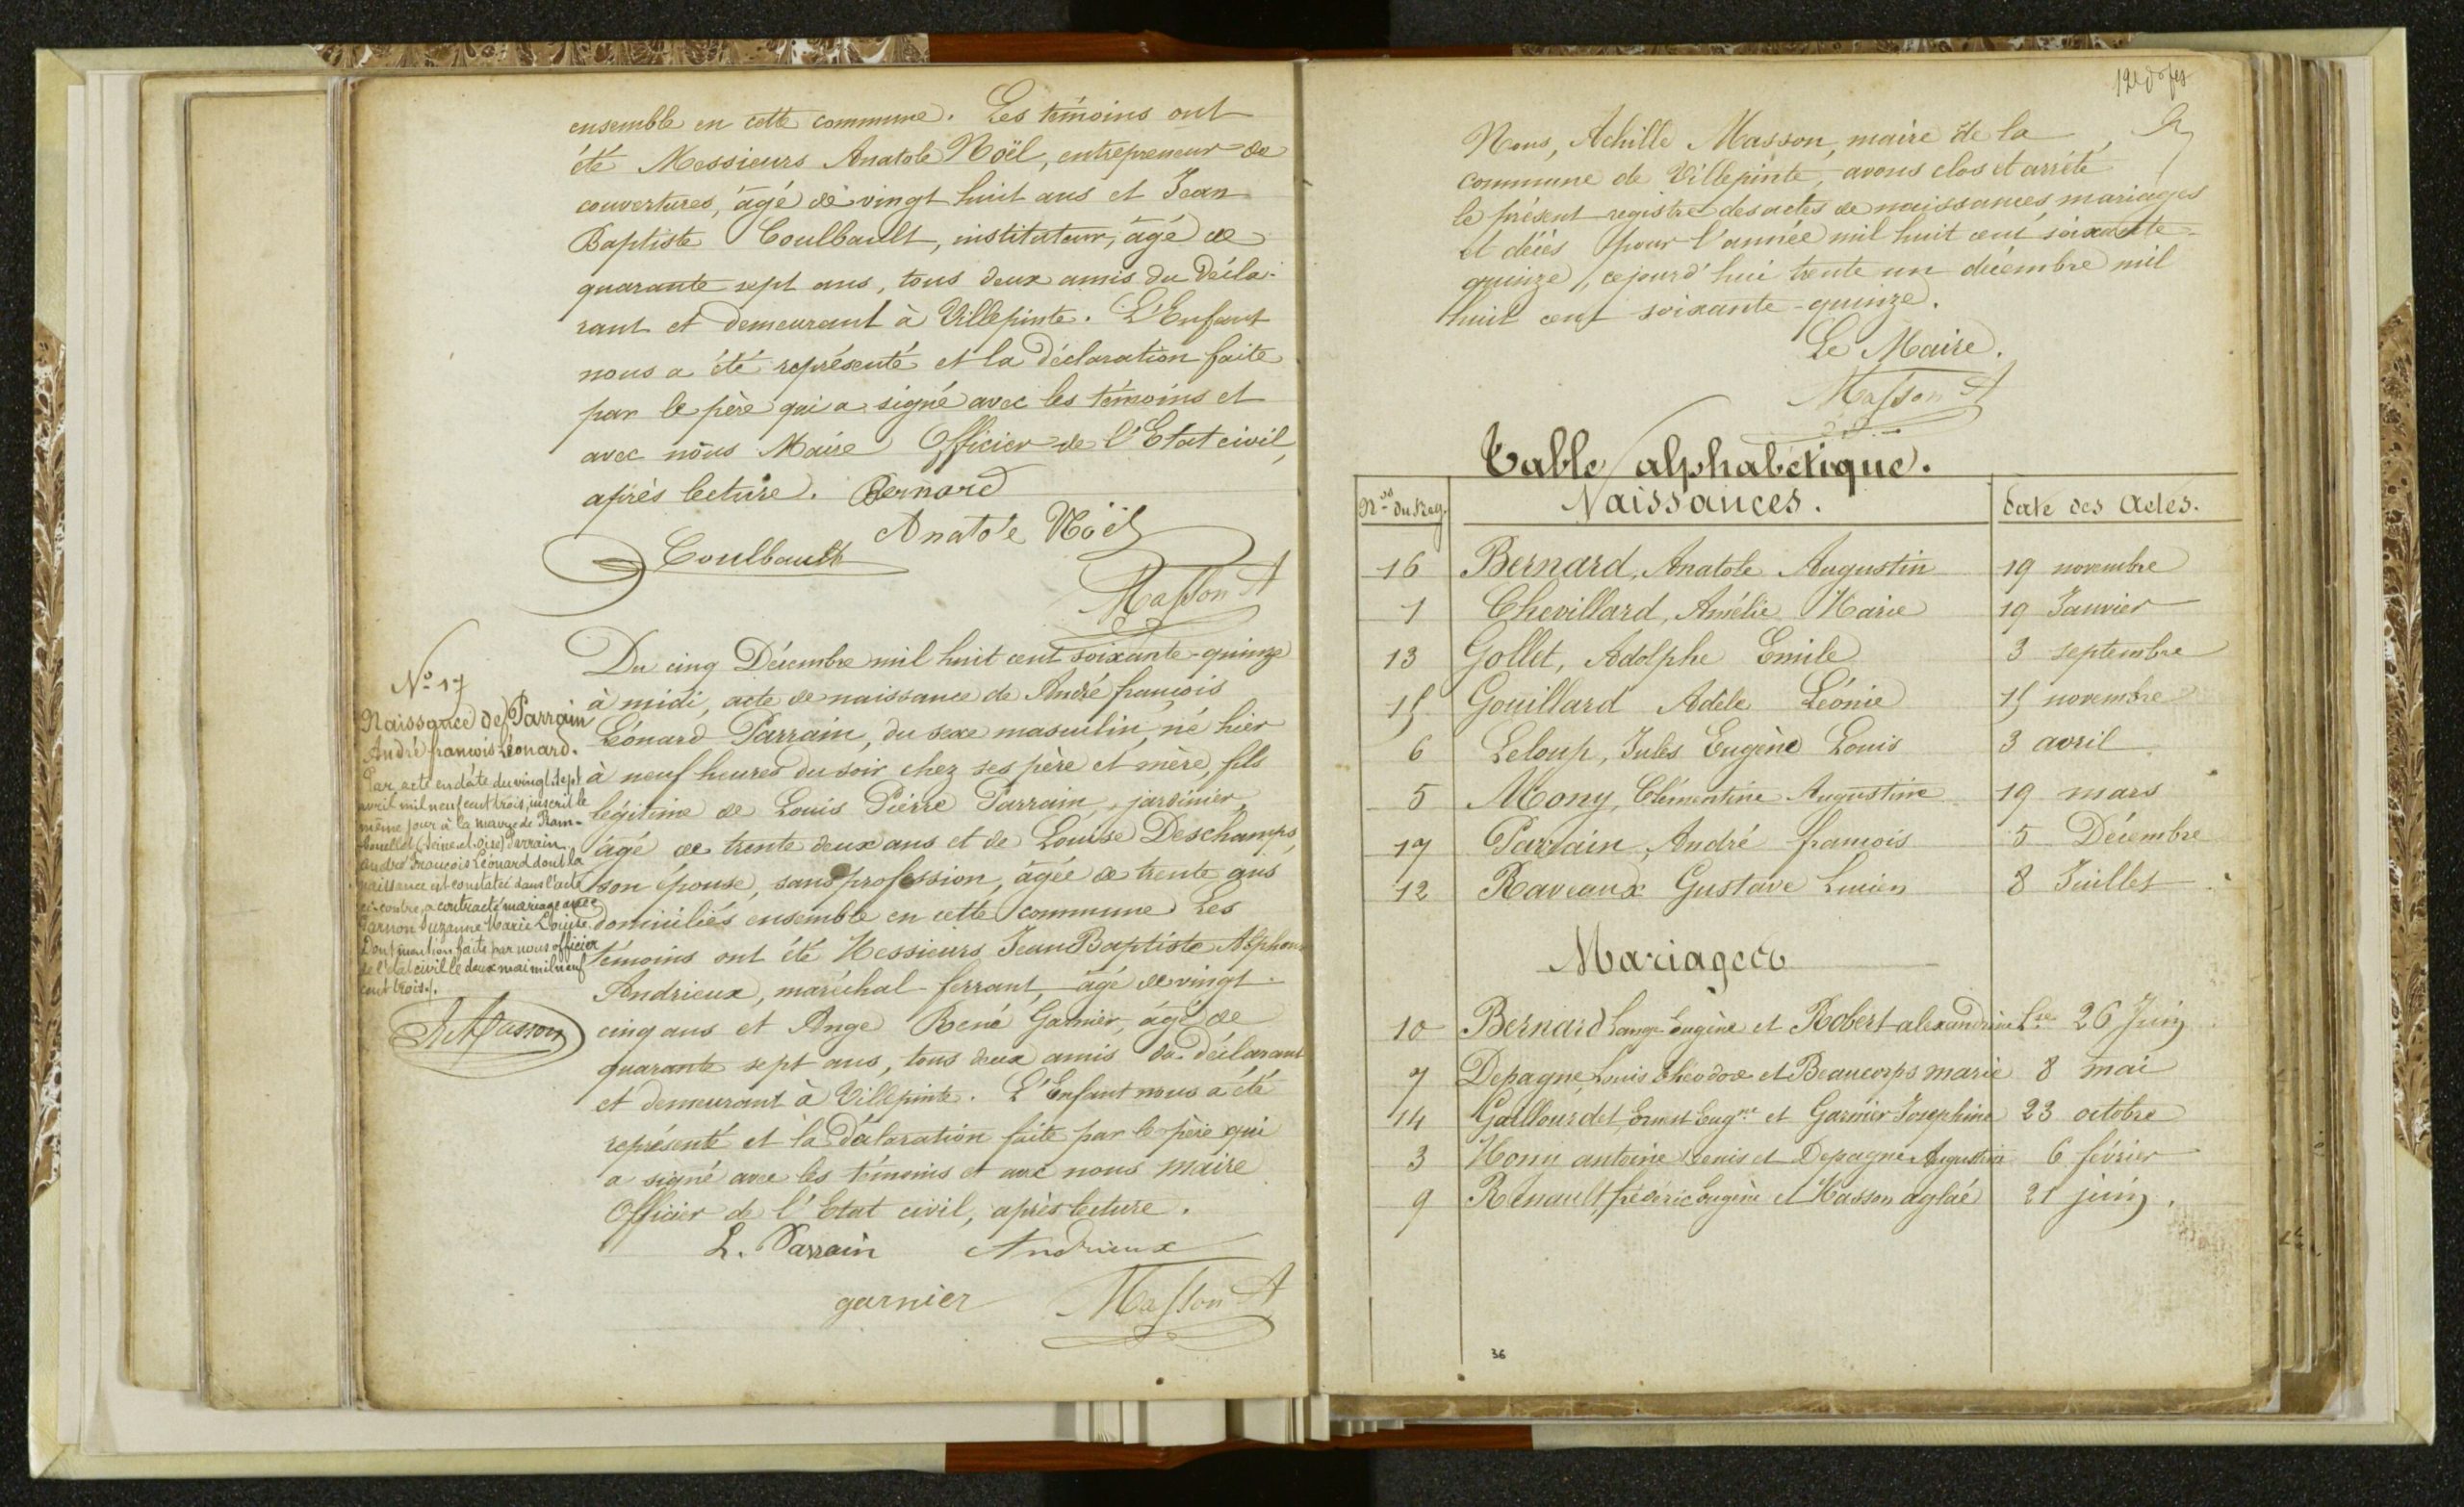 ensemble en cette commune. Les témoins ont
été Messieurs Anatole Noël, entrepreneur de
couvertures, âgé de vingt huit ans et Jean
Baptiste Coulbault, instituteur, âgé de
quarante sept ans, tous deux amis du décla-
rant et demeurant à Villepinte. L'Enfant
nous a été représenté et la déclaration faite
par le père qui a signé avec les témoins et
avec nous Maire Officier de l'Etat civil,
après lecture. Bernard
Anatole Noël
Coulbault
Masson A
Nº 17
Naissance de Parrain
André françois Léonard.
Par acte en date du vingt sept
avril mil neuf cent trois, inscrit le
même jour à la mairie de Ram-
bouillet (Seine-et-Oise) Parrain
André François Léonard dont la
naissance est constatée dans l'acte
ci-contre, a contracté mariage avec
Suzanne Marie Louise.
Dont mention faite par nous officier
de l'état civil le deux mai mil neuf
cent trois./.
A Masson
Du cinq Décembre mil huit cent soixante-quinze
à midi, acte de naissance de André françois
Léonard Parrain, du sexe masculin, né hier
à neuf heures du soir chez ses père et mère, fils
légitime de Louis Pierre Parrain, jardinier,
âgé de trente deux ans et de Louise Deschamps,
son épouse, sans profession, âgée de trente ans
domiciliés ensemble en cette commune. Les
témoins ont été Messieurs Jean Baptiste Alphon
Andrieux, maréchal-ferrant, âgé de vingt-
cinq ans et Ange René Garnier, âgé de
quarante sept ans, tous deux amis du déclarant
et demeurant à Villepinte. L'Enfant nous a été
représenté et la déclaration faite par le père qui
a signé avec les témoins et avec nous maire
Officier de l'Etat civil, après lecture.
L. Parrain Andrieux
garnier Masson A
Nous, Achille Masson, maire de la
commune de Villepinte, avons clos et arrêté
le présent registre des actes de naissances, mariages
et décès pour l'année mil huit cent soixante-
quinze, cejourd'hui trente un décembre mil
huit cent soixante-quinze.
Le Maire.
Masson A
Table alphabétique.
Nos du Reg. Naissances. Date des Actes.
16 Bernard, Anatole Augustin 19 novembre
1 Chevillard, Amélie Marie 19 Janvier
13 Gollet, Adolphe Emile 3 septembre
15 Gouillard Adèle Léonie 15 novembre
6 Leloup, Jules Eugène Louis 3 avril
5 Mony, Clémentine Augustine 19 mars
17 Parrain, André françois 5 Décembre
12 Raveaux Gustave Lucien 8 Juillet
Mariages
10 Bernard Eugène et Robert alexandrine 26 Juin
7 Depagne, Louis théodore et Beaucorps marie 8 mai
14 Gaillourdet, Ernest Eugne et Garnier Joséphine 23 octobre
3 Mony antoine Denis et Depagne Augustine 6 février
9 Renault, frédéric Eugène et Masson aglaé 21 juin.
36